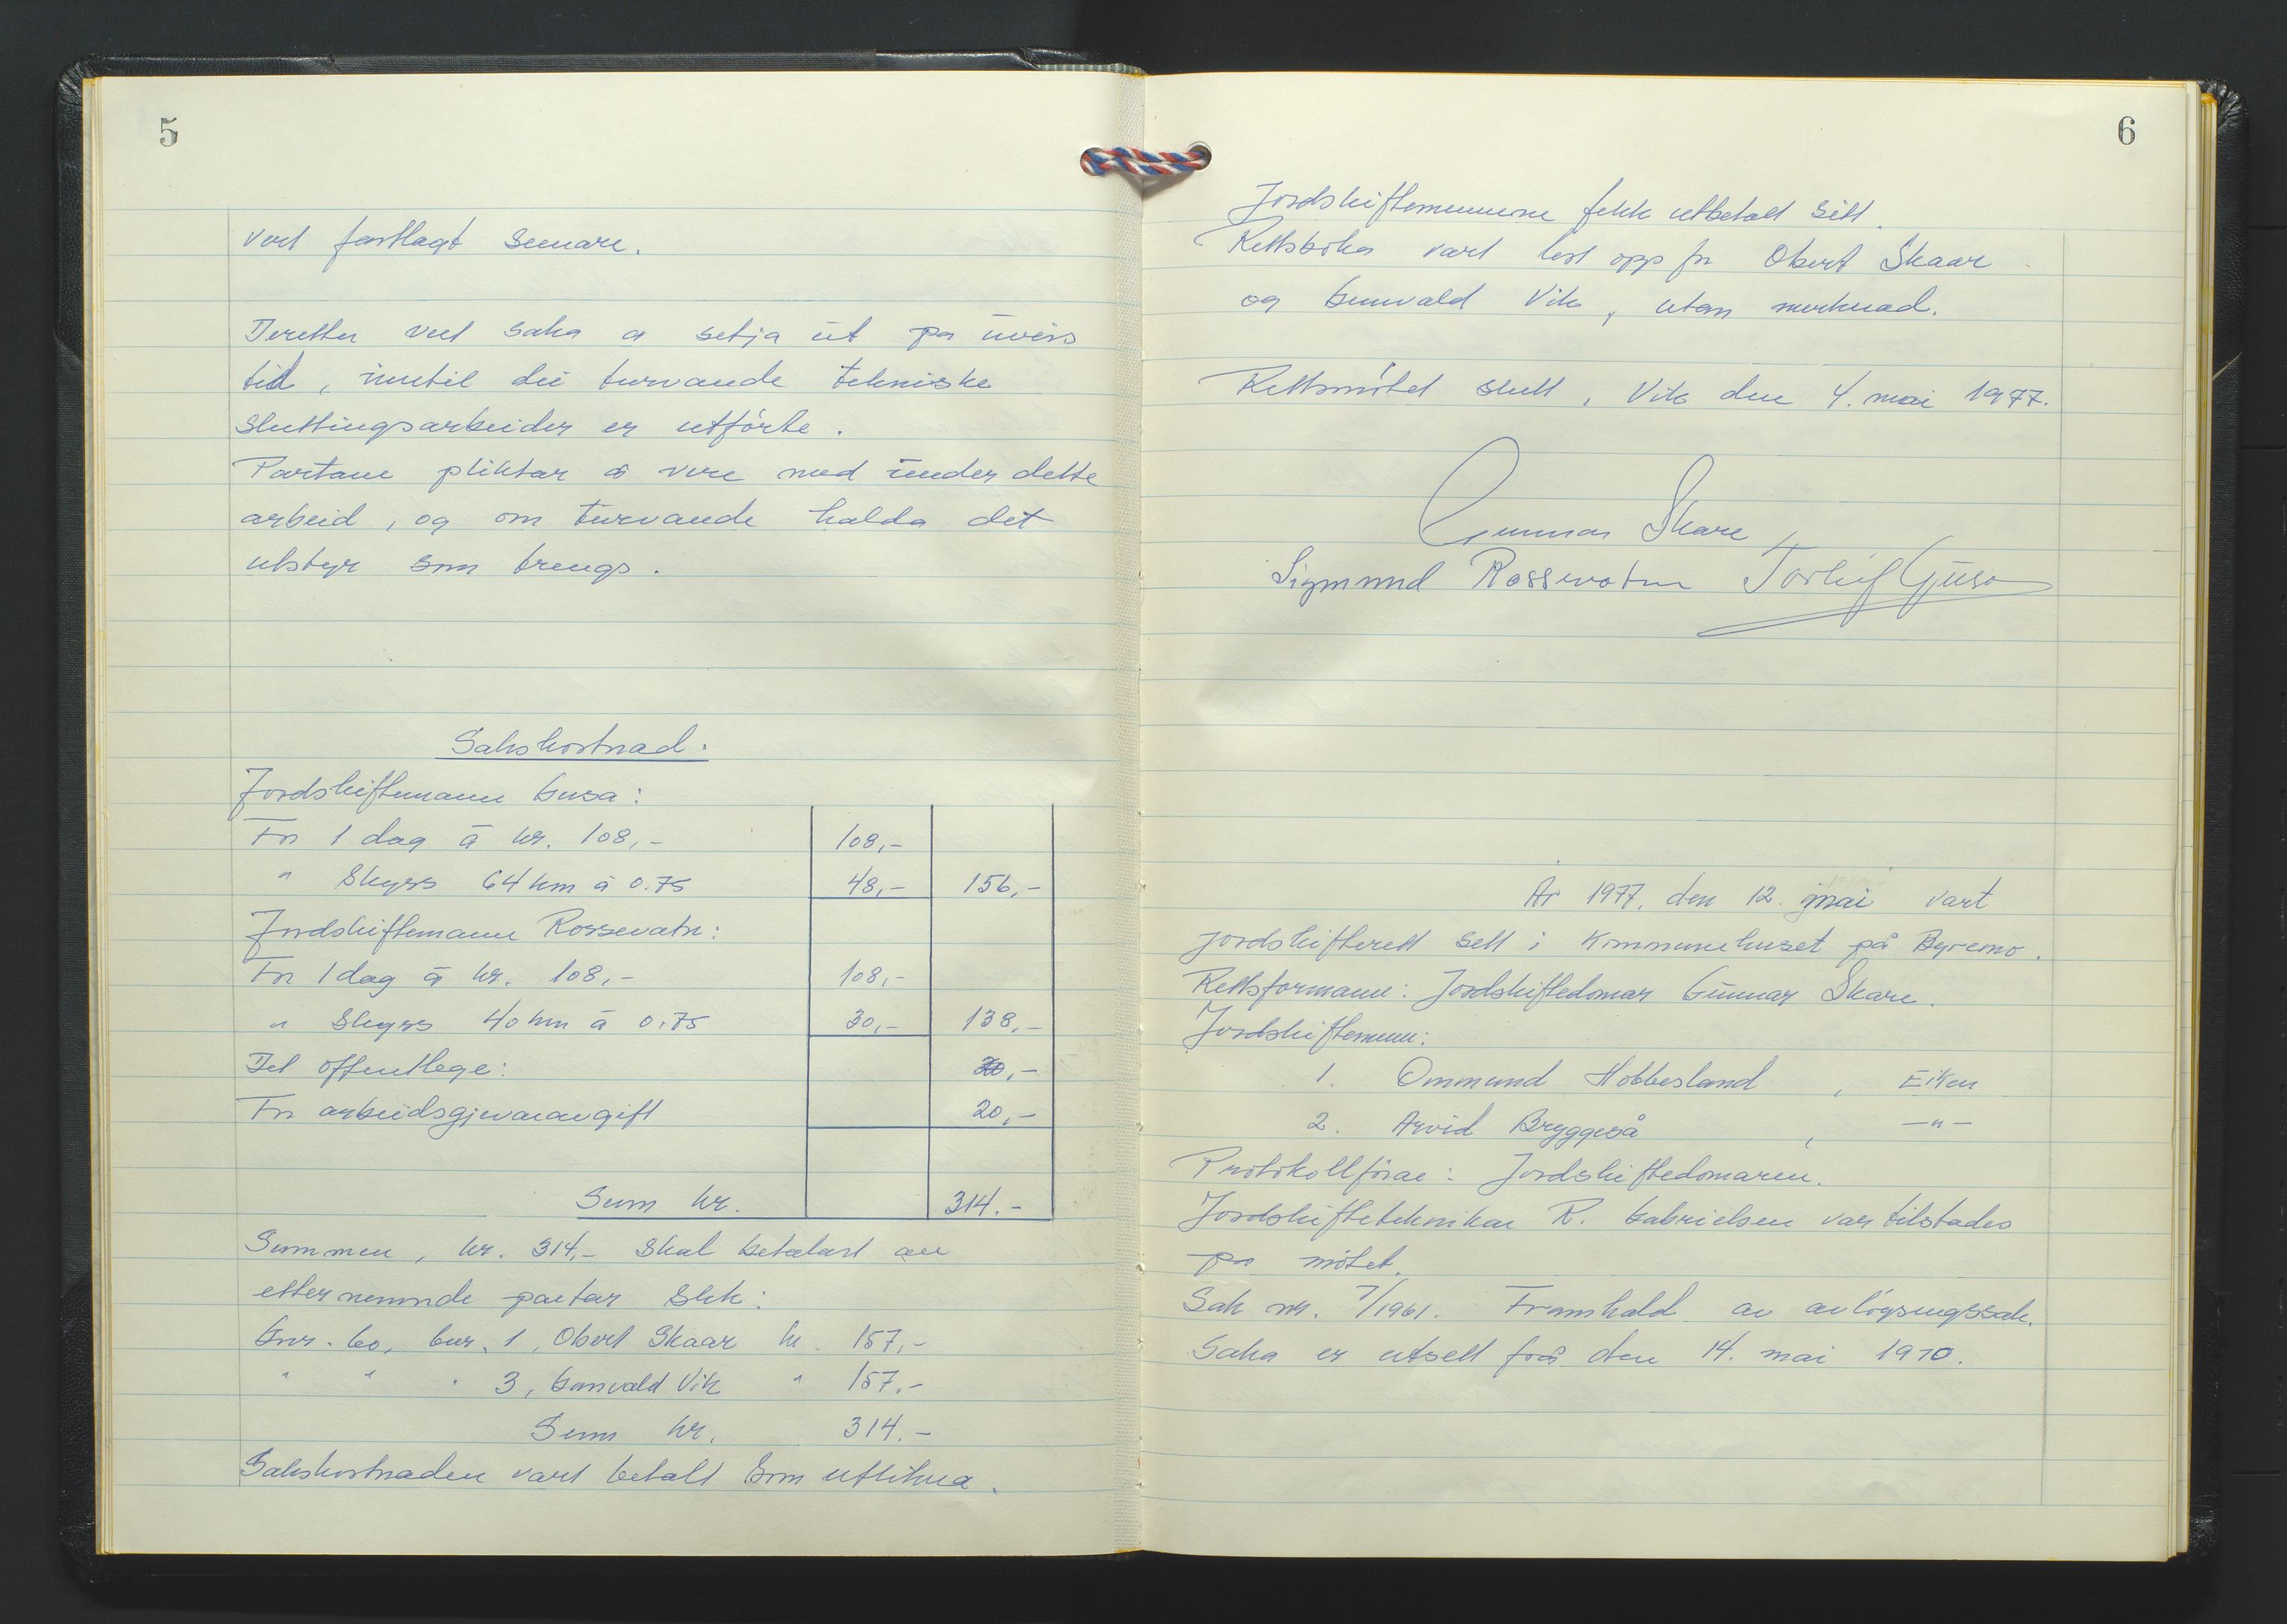 5
vert fastlagt seinare.
Deretter vert saka å setja ut på uviss
tid, inntil dei turvande tekniske
sluttingsarbeider er utførte.
Partane pliktar å vere med under dette
arbeid, og om turvande halda det
utstyr som trengs.
Sakskostnad.
Jordskiftemann Gusa:
For 1 dag á kr. 108,- 108,-
" Skyss 64 km á 0.75 48,- 156,-
Jordskiftemann Rossevatn:
For 1 dag á kr. 108,- 108,-
" Skyss 40 km á 0,75 30,- 138,-
Det offentlege: ,-
For arbeidsgjevaravgift 20,-
Sum kr. 314.-
Summen, kr. 314,- skal betalast av
etternemnde partar slik:
Gnr. 60, bnr. 1, Obert Skaar kr. 157,-
" " " 3, Gunvald Vik " 157.-
Sum kr. 314.-
Sakskostnaden vart betalt som utlikna.
6
Jordskiftemennene fekk utbetalt sitt.
Rettsboka vart lest opp for Obert Skaar
og Gunvald Vik, utan merknad.
Rettsmøtet slutt, Vik den 4. mai 1977.
Gunnar Skare
Sigmund Rossevatn Torleif Gusa
År 1977, den 12. mai vart
jordskifterett sett i kommunehuset på Byremo.
Rettsformann: Jordskiftedomar Gunnar Skare.
Jordskiftemenn:
1. Ommund Hobbesland, Eiken
2. Arvid Bryggeså, -"-
Protokollførar: Jordskiftedomaren.
Jordskifteteknikar R. Gabrielsen var tilstades
på møtet.
Sak nr. 7/1961. Framhald av avløysingssak.
Saka er utsett frå den 14. mai 1970.